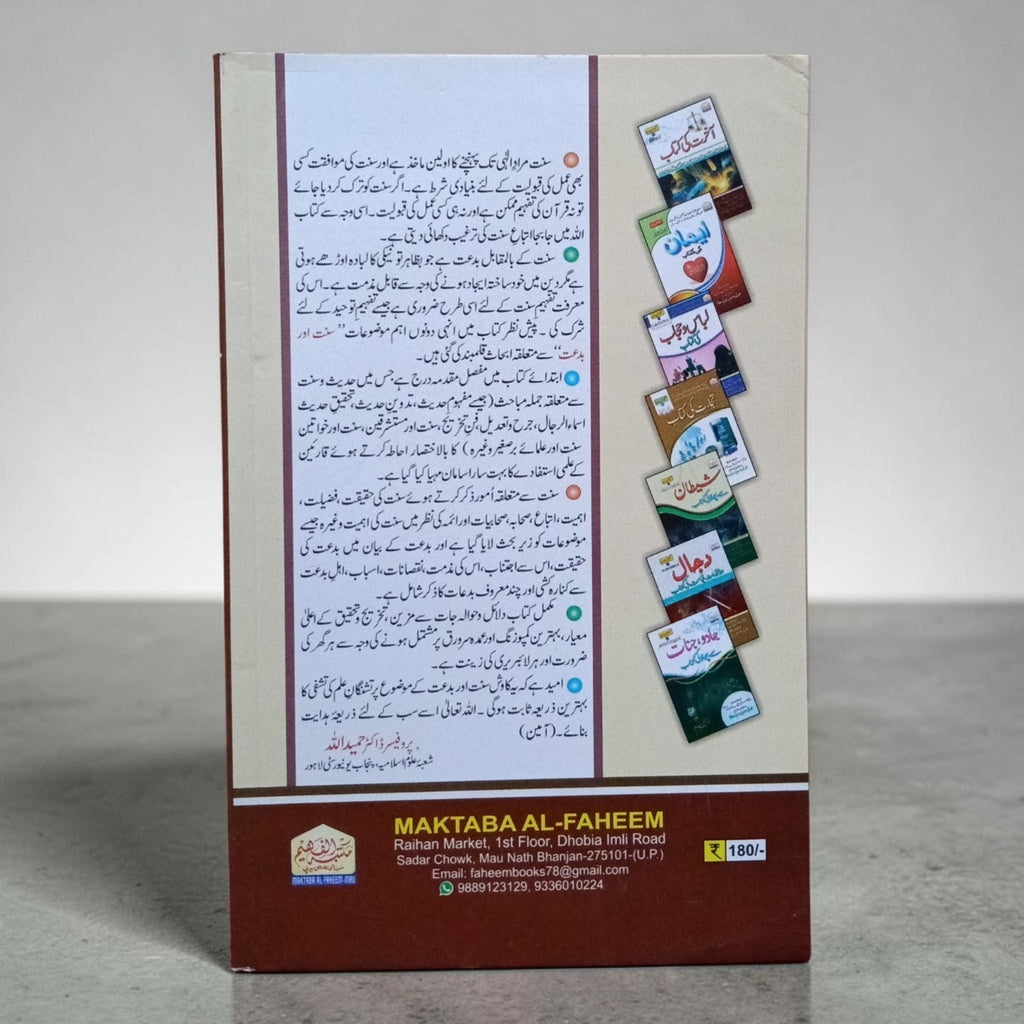 سنت مرادِ الٰہی تک پہنچنے کا اولین ماخذ ہے اور سنت کی موافقت کسی
بھی عمل کی قبولیت کے لئے بنیادی شرط ہے۔ اگر سنت کو ترک کر دیا جائے
تو نہ قرآن کی تفہیم ممکن ہے اور نہ ہی کسی عمل کی قبولیت۔ اسی وجہ سے کتاب
اللہ میں جا بجا اتباعِ سنت کی ترغیب دکھائی دیتی ہے۔
سنت کے بالمقابل بدعت ہے جو بظاہر تو نیکی کا لبادہ اوڑھے ہوتی
ہے مگر دین میں خود ساختہ ایجاد ہونے کی وجہ سے قابل مذمت ہے۔ اس کی
معرفت تفہیم سنت کے لئے اسی طرح ضروری ہے جیسے تفہیم توحید کے لئے
شرک کی۔ پیش نظر کتاب میں انہی دونوں اہم موضوعات "سنت اور
بدعت" سے متعلقہ ابحاث قلمبند کی گئی ہیں۔
ابتدائے کتاب میں مفصل مقدمہ درج ہے جس میں حدیث و سنت
سے متعلقہ جملہ مباحث (جیسے مفہوم حدیث، تدوین حدیث، تحقیق حدیث
اسماء الرجال، جرح و تعدیل، فنِ تخریج، سنت اور مستشرقین، سنت اور خواتین
سنت اور علمائے برصغیر وغیرہ) کا بالاختصار احاطہ کرتے ہوئے قارئین
کے علمی استفادے کا بہت سارا سامان مہیا کیا گیا ہے۔
سنت سے متعلقہ اُمور ذکر کرتے ہوئے سنت کی حقیقت، فضیلت،
اہمیت، اتباع، صحابہ، صحابیات اور ائمہ کی نظر میں سنت کی اہمیت وغیرہ جیسے
موضوعات کو زیر بحث لایا گیا ہے اور بدعت کے بیان میں بدعت کی
حقیقت، اس سے اجتناب، اس کی مذمت، نقصانات، اسباب، اہل بدعت
سے کنارہ کشی اور چند معروف بدعات کا ذکر شامل ہے۔
مکمل کتاب دلائل و حوالہ جات سے مزین، تخریج و تحقیق کے اعلیٰ
معیار، بہترین کمپوزنگ اور عمدہ سرورق پر مشتمل ہونے کی وجہ سے ہر گھر کی
ضرورت اور ہر لائبریری کی زینت ہے۔
امید ہے کہ یہ کاوش سنت اور بدعت کے موضوع پر تشنگانِ علم کی تشفی کا
بہترین ذریعہ ثابت ہوگی۔ اللہ تعالیٰ اسے سب کے لئے ذریعۂ ہدایت
بنائے۔ (آمین)
پروفیسر ڈاکٹر حمید اللہ
شعبہ علوم اسلامیہ، پنجاب یونیورسٹی لاہور
آخرت کی کتاب
ایمان
کی کتاب
لباس و حجاب
کی کتاب
تجارت کی کتاب
شیطان
سے بچاؤ کی کتاب
دجال
جادو، جنات
سے بچاؤ کی کتاب
مکتبہ الفہیم
MAKTABA AL-FAHEEM-MAU
MAKTABA AL-FAHEEM
Raihan Market, 1st Floor, Dhobia Imli Road
Sadar Chowk, Mau Nath Bhanjan-275101-(U.P.)
Email: faheembooks78@gmail.com
9889123129, 9336010224
₹ 180/-